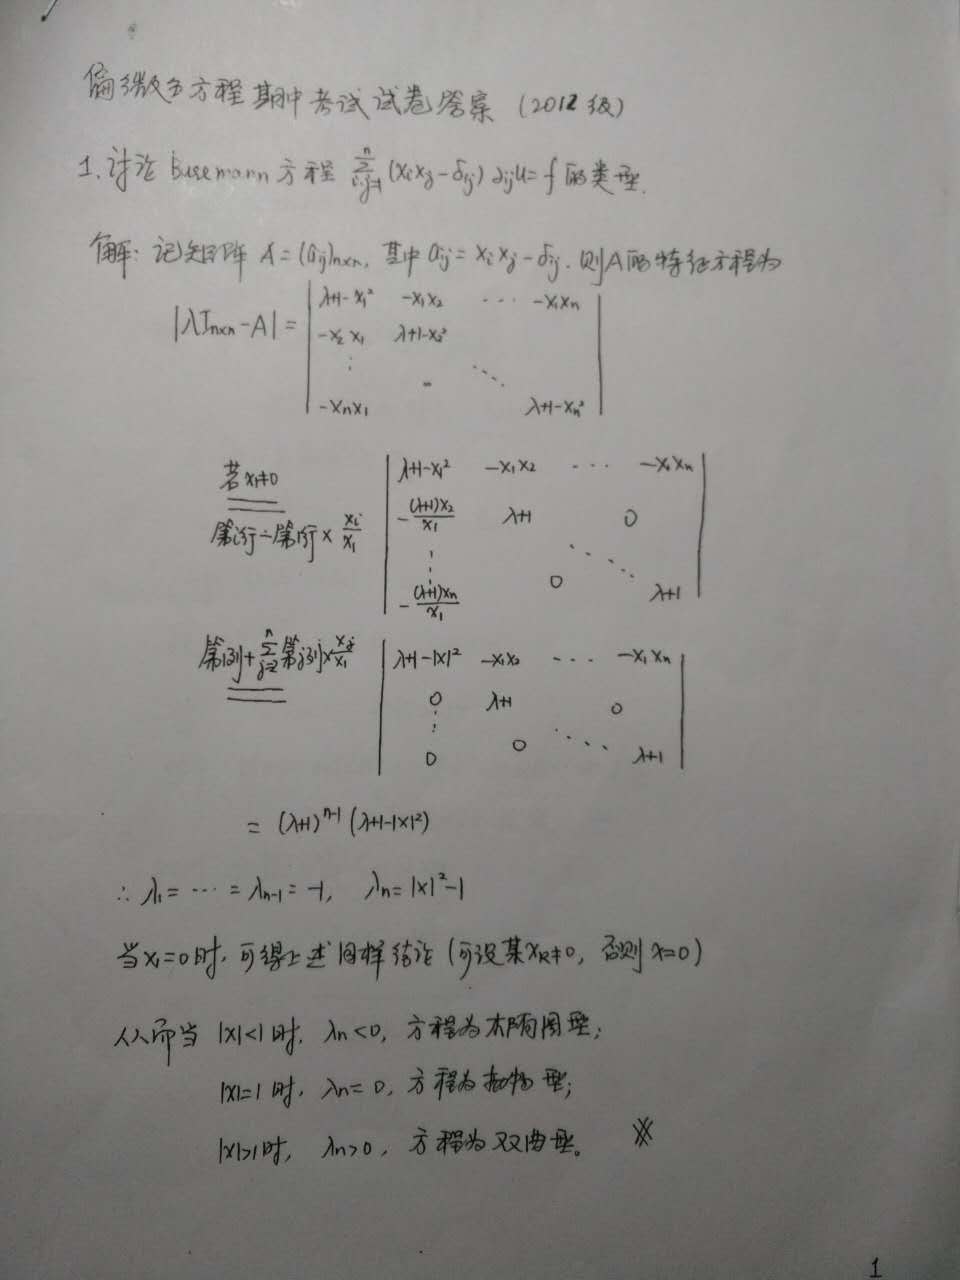 偏微分方程期中考试试卷答案 (2012级)
1. 讨论 Busemann 方程 ∑_{i,j=1}^{n} (x_i x_j - δ_{ij}) ∂_{ij}u = f 的类型.
解: 记矩阵 A = (a_{ij})_{n×n}, 其中 a_{ij} = x_i x_j - δ_{ij}. 则A的特征方程为
|λI_{n×n} - A| = | λ+1-x_1² -x_1x_2 ··· -x_1x_n
-x_2x_1 λ+1-x_2²
⋮ ··· ⋱
-x_nx_1 λ+1-x_n² |
若 x_1≠0
第i行-第1行 × x_i/x_1
| λ+1-x_1² -x_1x_2 ··· -x_1x_n
-(λ+1)x_2/x_1 λ+1 0
⋮ ⋱
-(λ+1)x_n/x_1 0 λ+1 |
第1列+∑_{j=2}^{n} 第j列×x_j/x_1
| λ+1-|x|² -x_1x_2 ··· -x_1x_n
0 λ+1 0
⋮ ⋱
0 0 λ+1 |
= (λ+1)^{n-1} (λ+1-|x|²)
∴ λ_1 = ··· = λ_{n-1} = -1, λ_n = |x|²-1
当 x_1=0 时, 可得上述同样结论 (可设某x_k≠0, 否则 x=0)
从而当 |x|<1 时, λ_n<0, 方程为椭圆型;
|x|=1 时, λ_n=0, 方程为抛物型;
|x|>1 时, λ_n>0, 方程为双曲型。 ※
1